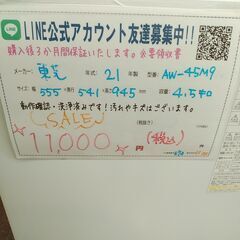 LINE
LINE公式アカウント友達募集中!!
購入後3か月間保証いたします。必要領収書
メーカー 東芝 年式 21年 型番 AW-45M9
サイズ 幅 555 × 奥行 541 × 高さ 945 mm 4.5キロ
動作確認・洗浄済みです!汚れやキズはございます。
SALE (税抜き)
11,000 円 (税込)